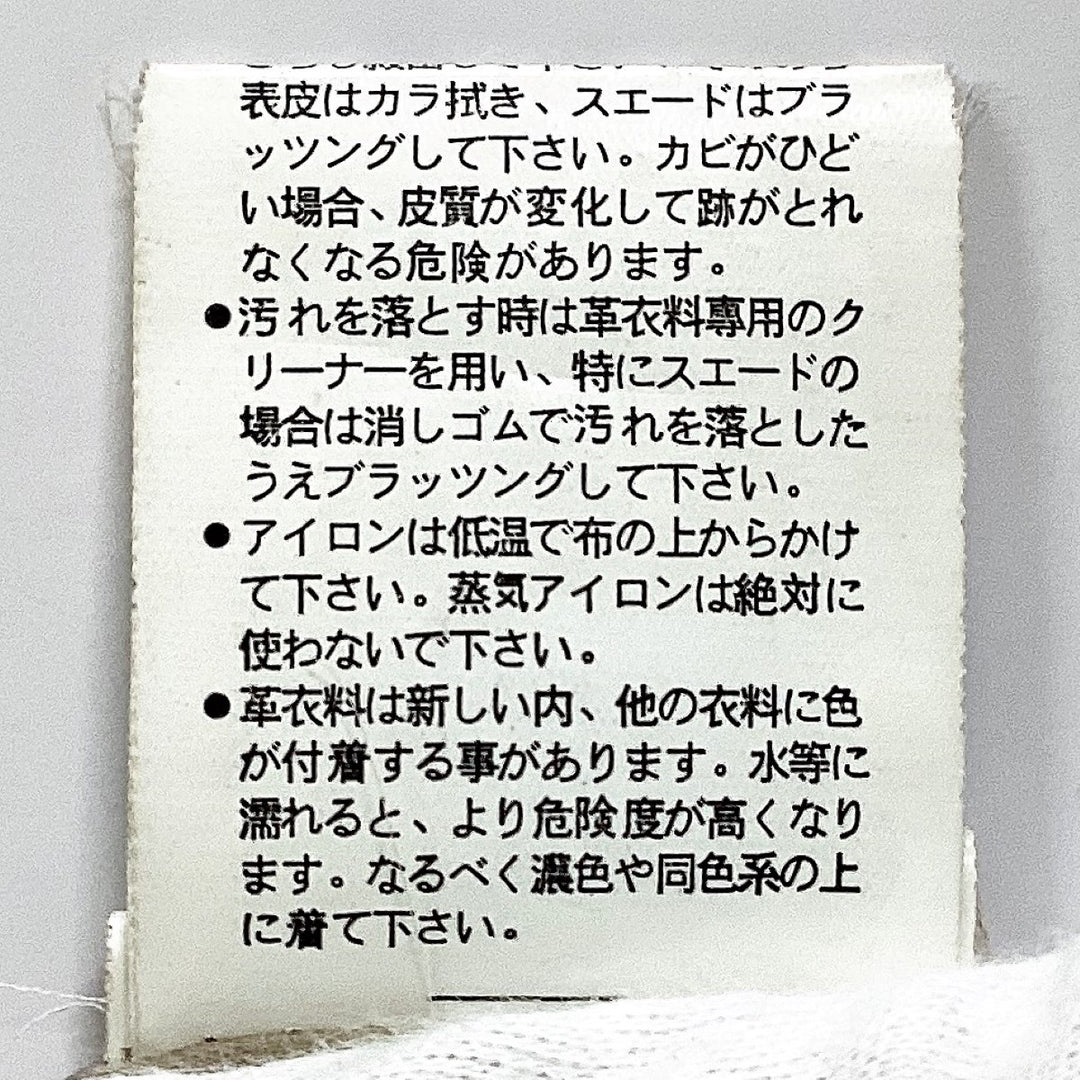 表皮はカラ拭き、スエードはブラ
ッツングして下さい。カビがひど
い場合、皮質が変化して跡がとれ
なくなる危険があります。
●汚れを落とす時は革衣料専用のク
リーナーを用い、特にスエードの
場合は消しゴムで汚れを落とした
うえブラッツングして下さい。
●アイロンは低温で布の上からかけ
て下さい。蒸気アイロンは絶対に
使わないで下さい。
●革衣料は新しい内、他の衣料に色
が付着する事があります。水等に
濡れると、より危険度が高くなり
ます。なるべく濃色や同色系の上
に着て下さい。